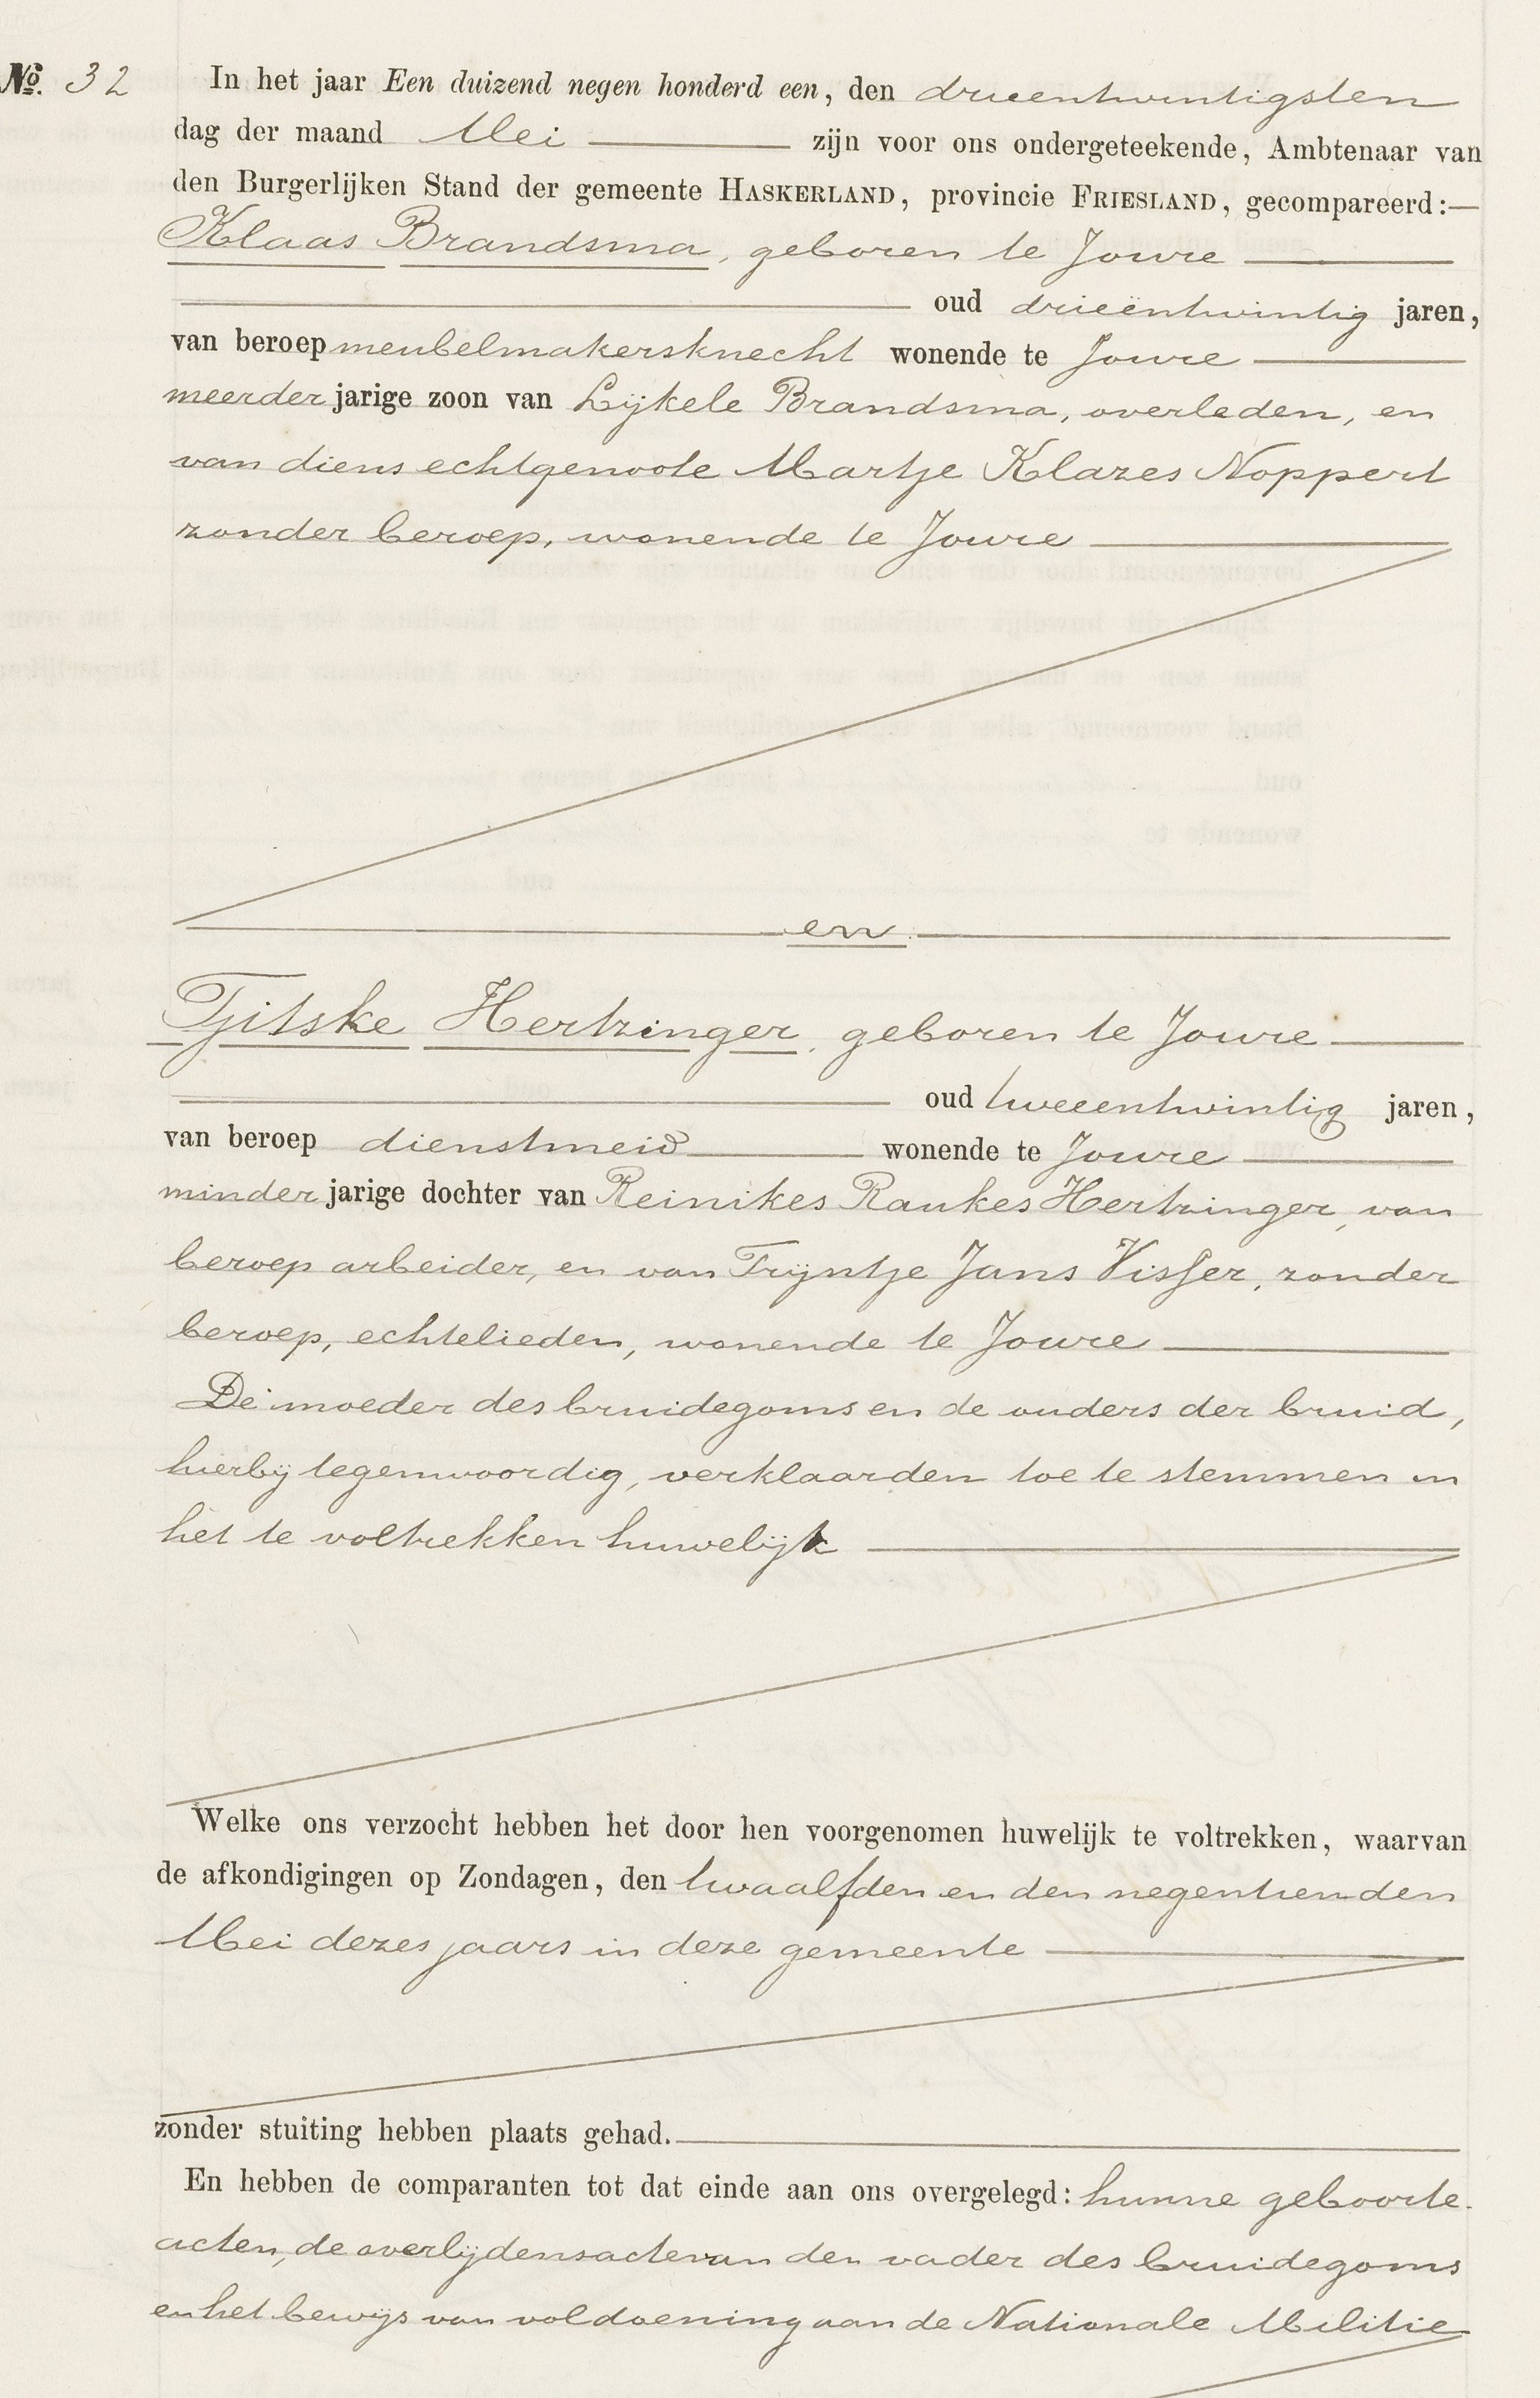 No. 32 In het jaar Een duizend negen honderd een, den drieentwintigsten
dag der maand Mei zijn voor ons ondergeteekende, Ambtenaar van
den Burgerlijken Stand der gemeente HASKERLAND, provincie FRIESLAND, gecompareerd:—
Klaas Brandsma, geboren te Joure
oud drieëntwintig jaren,
van beroep meubelmakersknecht wonende te Joure
meerderjarige zoon van Lijkele Brandsma, overleden, en
van diens echtgenoote Martje Klazes Noppert
zonder beroep, wonende te Joure
en
Tjitske Hertzinger, geboren te Joure
oud tweeentwintig jaren,
van beroep dienstmeid wonende te Joure
minderjarige dochter van Reinikes Raukes Hertzinger, van
beroep arbeider, en van Trijntje Jans Visser, zonder
beroep, echtelieden, wonende te Joure
De moeder des bruidegoms en de ouders der bruid,
hierbij tegenwoordig, verklaarden toe te stemmen in
het te voltrekken huwelijk
Welke ons verzocht hebben het door hen voorgenomen huwelijk te voltrekken, waarvan
de afkondigingen op Zondagen, den twaalfden en den negentienden
Mei dezes jaars in deze gemeente
zonder stuiting hebben plaats gehad.
En hebben de comparanten tot dat einde aan ons overgelegd: hunne geboorte-
acten, de overlijdensacte van den vader des bruidegoms
en het bewijs van voldoening aan de Nationale Militie